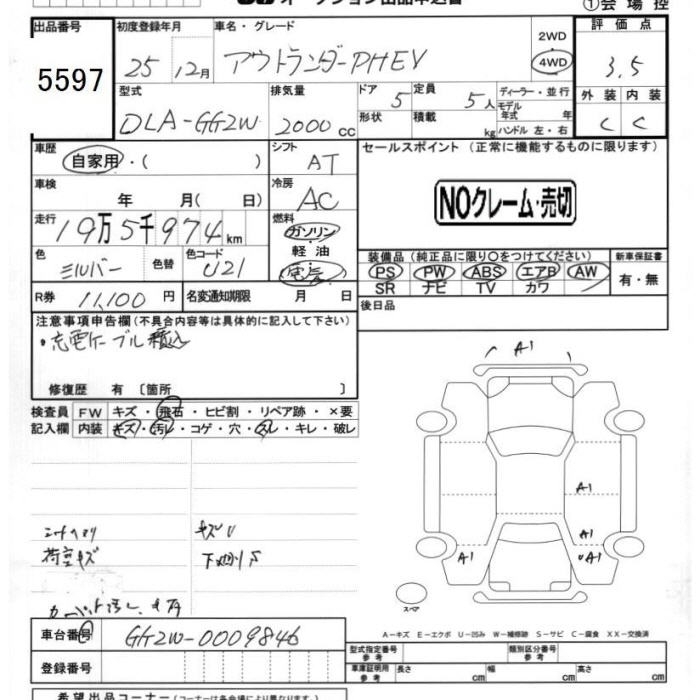 オークション出品申込書
①会場控
出品番号 初度登録年月 車名・グレード 2WD 4WD 評価点
5597 25 12月 アウトランダーPHEV 3.5
型式 排気量 ドア 5 定員 5人 ディーラー・並行 外装 内装
DLA-GG2W 2000cc 形状 積載 kg モデル年式 年 ハンドル 左・右 C C
車歴 自家用・( ) シフト AT セールスポイント (正常に機能するものに限ります)
車検 年 月(日) 冷房 AC NOクレーム・売切
走行 19万5千974km 燃料 ガソリン 軽油 電気
装備品 (純正品に限り○をつけてください) 新車保証書
色 シルバー 色替 色コード U21 PS PW ABS エアB AW 有・無
SR ナビ TV カワ
R券 11,100円 名変通知期限 月 日 後日品
注意事項申告欄 (不具合内容等は具体的に記入して下さい)
・充電ケーブル積込
修復歴 有 〔箇所 〕
検査員 FW キズ・飛石・ヒビ割・リペア跡・×要
記入欄 内装 キズ・汚レ・コゲ・穴・スレ・キレ・破レ
A1
A1
A1
A1 A1
荷室キズ
スペア
A-キズ E-エクボ U-凹み W-補修跡 S-サビ C-腐食 XX-交換済
車台番号 GG2W-0009846
型式指定番号 参考 類別区分番号 参考
登録番号 車庫証明用 参考 長さ cm 幅 cm 高さ cm
希望出品コーナー (コーナーは各会場により異なります。)